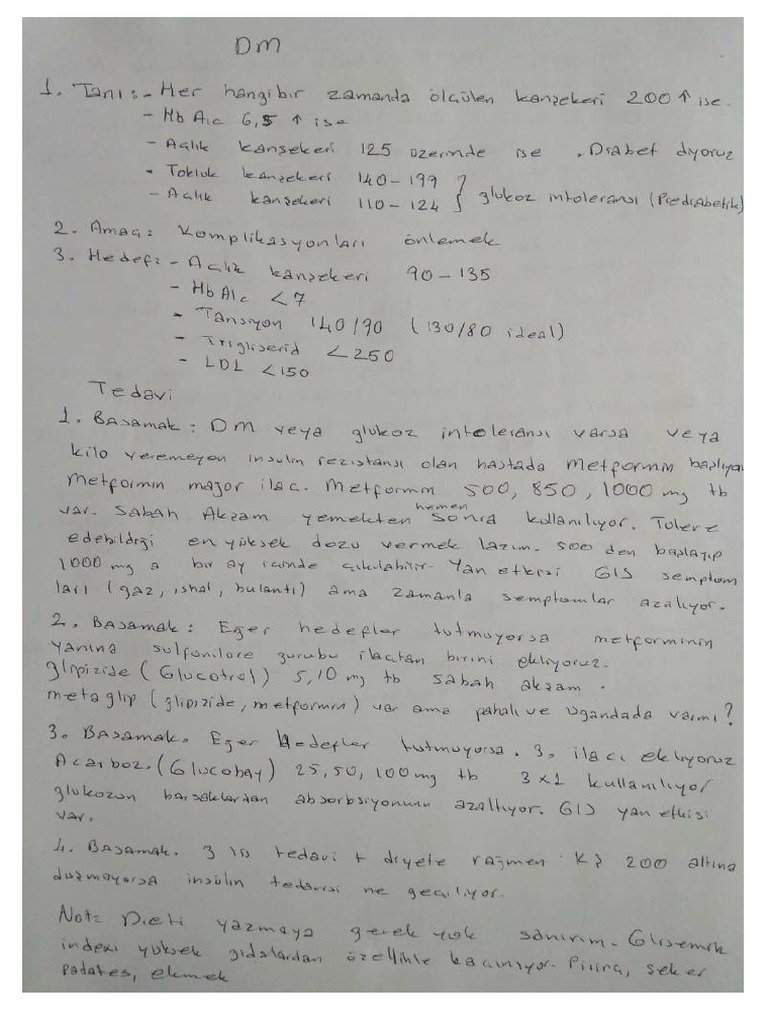 DM
1. Tanı:- Her hangibir zamanda ölçülen kanşekeri 200↑ ise.
- HbA1c 6,5 ↑ ise
- Açlık kanşekeri 125 üzerinde ise . Diabet diyoruz
- Tokluk kanşekeri 140-199
- Açlık kanşekeri 110-124 } glukoz intoleransı (Prediabetik)
2. Amaç: Komplikasyonları önlemek
3. Hedef: - Açlık kanşekeri 90-135
- HbA1c <7
- Tansiyon 140/90 (130/80 ideal)
- Trigliserid <250
- LDL <150
Tedavi
1. Basamak: DM veya glukoz intoleransı varsa veya
kilo veremeyen insulin rezistansı olan hastada Metformin başlıyo
Metformin major ilaç. Metformin 500, 850, 1000 mg tb
var. Sabah Akşam yemekten hemen sonra kullanılıyor. Tolere
edebildiği en yüksek dozu vermek lazım. 500 den başlayıp
1000 mg a bir ay içinde çıkılabilir. Yan etkisi GIS semptom
ları (gaz, ishal, bulantı) ama zamanla semptomlar azalıyor.
2. Basamak: Eğer hedefler tutmuyorsa metforminin
yanına sulfonilüre gurubu ilaçtan birini ekliyoruz.
glipizide (Glucotrol) 5,10 mg tb sabah akşam.
metaglip (glipizide, metformin) var ama pahalı ve Ugandada varmı?
3. Basamak. Eğer Hedefler tutmuyorsa. 3. ilacı ekliyoruz
Acarboz. (Glucobay) 25, 50, 100 mg tb 3x1 kullanılıyor
glukozun barsaklardan absorbsiyonunu azaltıyor. GIS yan etkisi
var.
4. Basamak. 3 lü tedavi + diyete rağmen KŞ 200 altına
düşmüyorsa insülin tedavisi ne geçiliyor.
Not: Dieti yazmaya gerek yok sanırım. Glisemik
indexi yüksek gıdalardan özellikle kaçınıyor. Pirinç, şeker
patates, ekmek